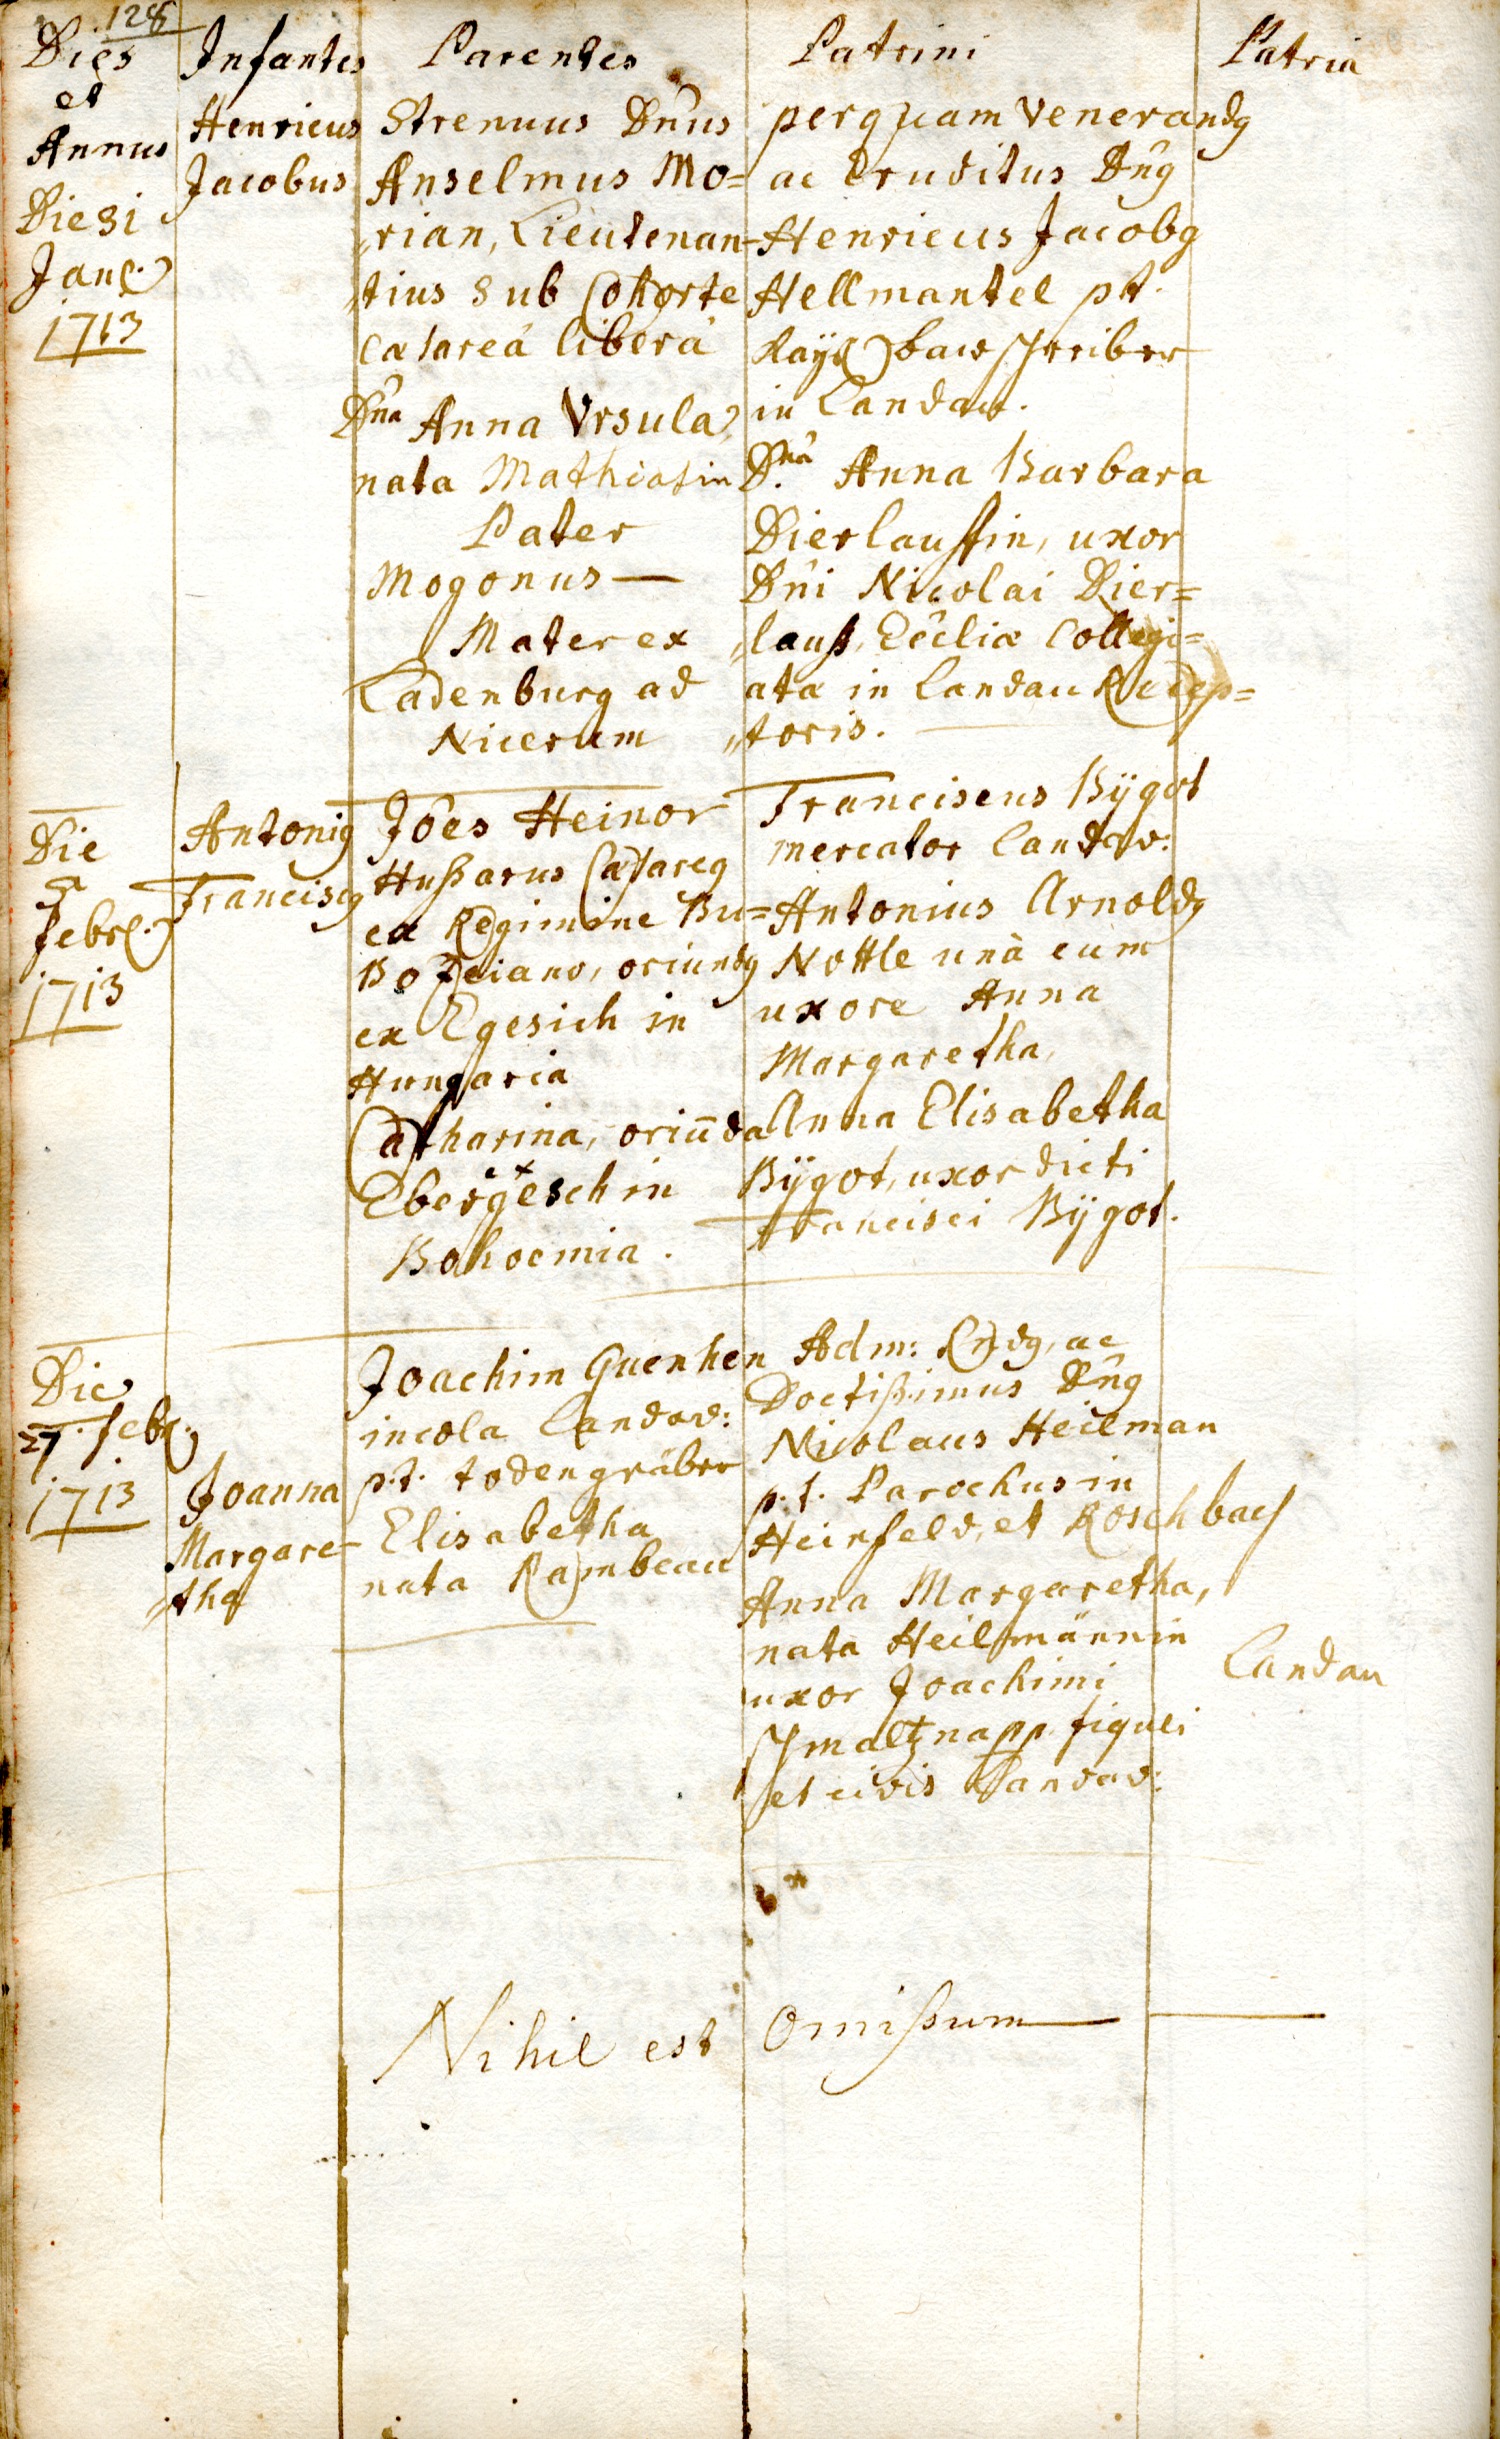 128
Dies
et
Annus
Infantes
Parentes
Patrini
Patria
Die 31
Jan.
1713
Henricus
Jacobus
Strenuus Dnus
Anselmus Mo=
rian, Lieutenan-
tius sub Cohorte
Cæsareâ liberâ
Dna Anna Vrsula,
nata Mathiasin
Pater
Mogonus —
Mater ex
Ladenburg ad
Nicerum
perquam Venerandg
ac Eruditus Dng
Henricus Jacobg
Hellmantel pt.
Kaÿs. bawschreiber
in Landau.
D.na Anna Barbara
Dierlaussin, uxor
Dni Nicolai Dier=
lauß, Eccliæ Collegi=
atæ in Landau Recep=
toris.
Die
5
febr.
1713
Antonig
Franciscg
Jôes Heinor
Hußarus Cæsareg
ex Regimine Bu=
Bozeiano, oriundg
ex Egesich in
Hungaria
Catharina, oriūda
ex
Ebergesch in
Bohoemia.
Franciscus Bÿgot
mercator Landav:
Antonius Arnoldg
Nottle unà cum
uxore Anna
Margaretha,
Anna Elisabetha
Bÿgot, uxor dicti
Francisci Bÿgot.
Die
27. febr.
1713
Joanna
Margare-
tha
Joachim Guenhen
incola Landav:
p.t. todengräber
Elisabetha
nata Rambeau
Adm: Rndg, ac
Doctißimus Dng
Nicolaus Heilman
p.t. Parochus in
Heinfeld, et Roschbach
Anna Margaretha,
nata Heilmännin
uxor Joachimi
Schmaltznapp figuli
et civis Landav:
Landau
Nihil est Omißum —